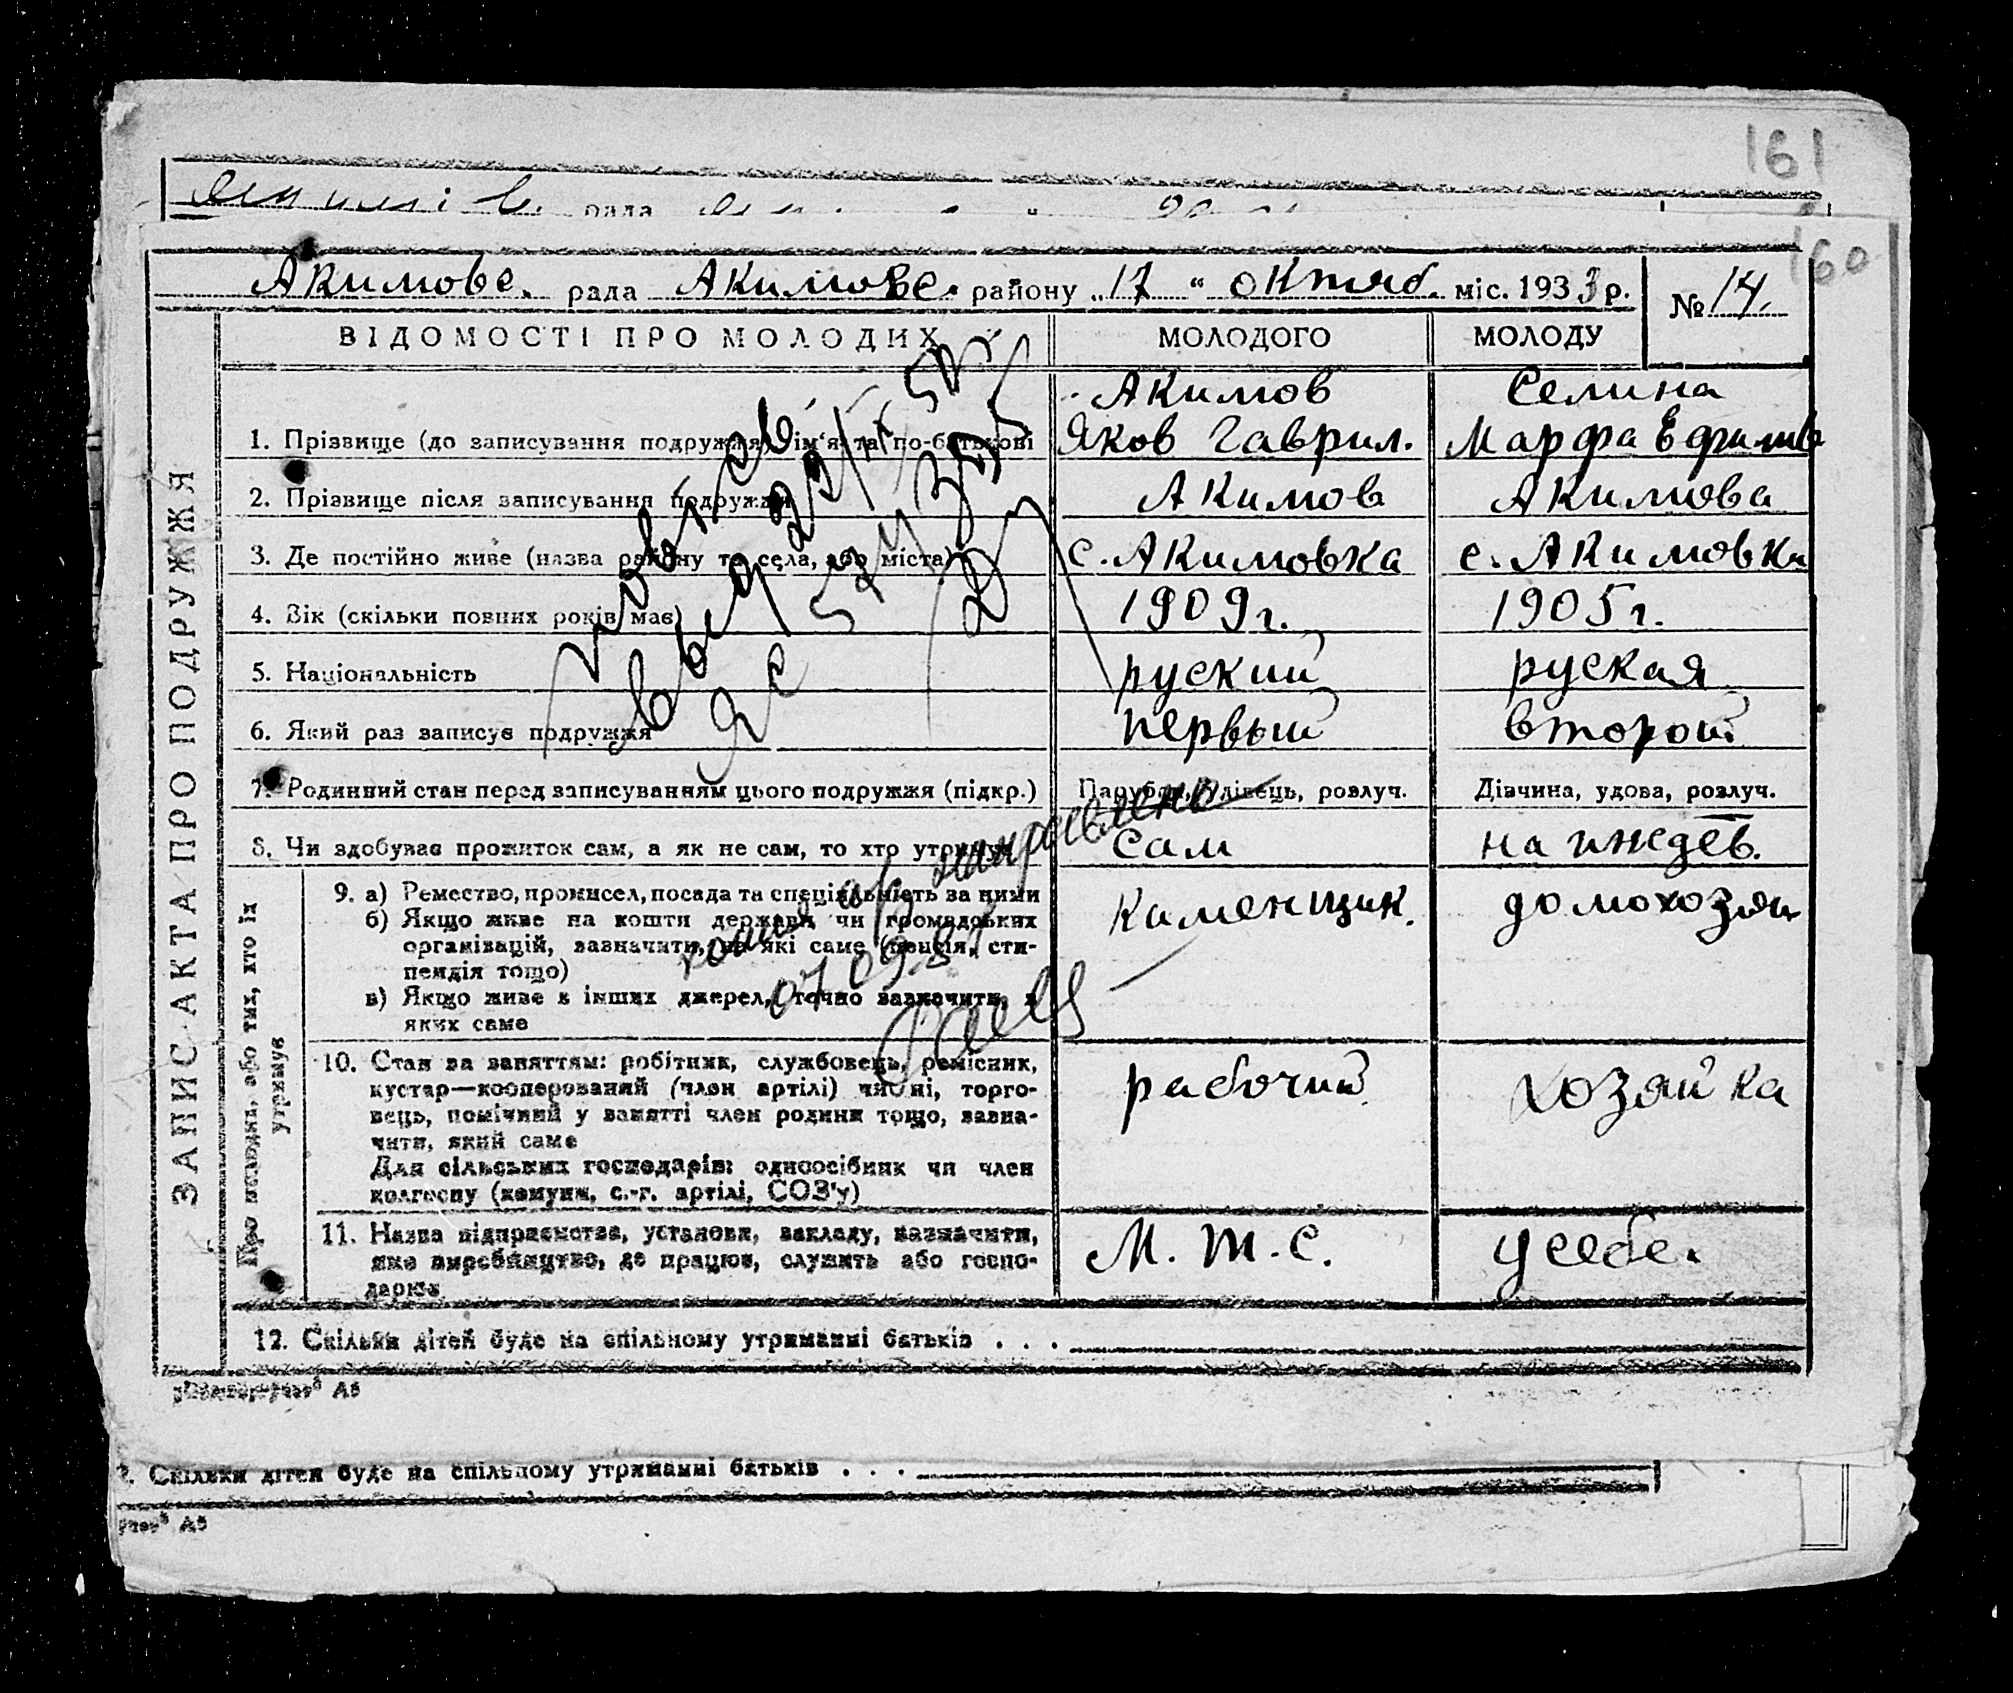 161
рада
160
Акимовс. рада Акимовс. району „17 “ октяб. міс. 1933 р.
№ 14.
ВІДОМОСТІ ПРО МОЛОДИХ
МОЛОДОГО
МОЛОДУ
ЗАПИС АКТА ПРО ПОДРУЖЖЯ
1. Прізвище (до записування подружжя) ім‘я та по-батькові
Акимов
Яков Гаврил.
Селина
Марфа Ефимов
2. Прізвище після записування подружжя
Акимов
Акимова
3. Де постійно живе (назва району та села, або міста)
с. Акимовка
с. Акимовка
4. Вік (скільки повних років має)
1909 г.
1905 г.
5. Національність
руский
руская
6. Який раз записує подружжя
первый
второй
7. Родинний стан перед записуванням цього подружжя (підкр.)
Парубок, удівець, розлуч.
Дівчина, удова, розлуч.
8. Чи здобуває прожиток сам, а як не сам, то хто утримує
сам
на иждев.
Про молодих, або тих, хто їх
утримує
9. а) Ремество, промисел, посада та спеціяльність за ними
б) Якщо живе на кошти держави чи громадських
організацій, зазначити, на які саме (пенсія, сти-
пендія тощо)
в) Якщо живе з інших джерел, точно зазначити, з
яких саме
Каменщик.
домохозяй
10. Стан за заняттям: робітник, службовець, ремісник,
кустар—кооперований (член артілі) чи ні, торго-
вець, помічний у занятті член родини тощо, зазна-
чити, який саме
Для сільських господарів: одноосібник чи член
колгоспу (комуни, с.-г. артілі, СОЗ'у)
рабочий
хозяйка
11. Назва підприємства, установи, закладу, зазначити,
яке виробництво, де працює, служить або госпо-
дарює
М. т. с.
у себе.
12. Скільки дітей буде на спільному утриманні батьків . . .
повтор
выд 29/IX 58г
копия направлена
07.09.87
А5
2. Скільки дітей буде на спільному утриманні батьків . . .
А5